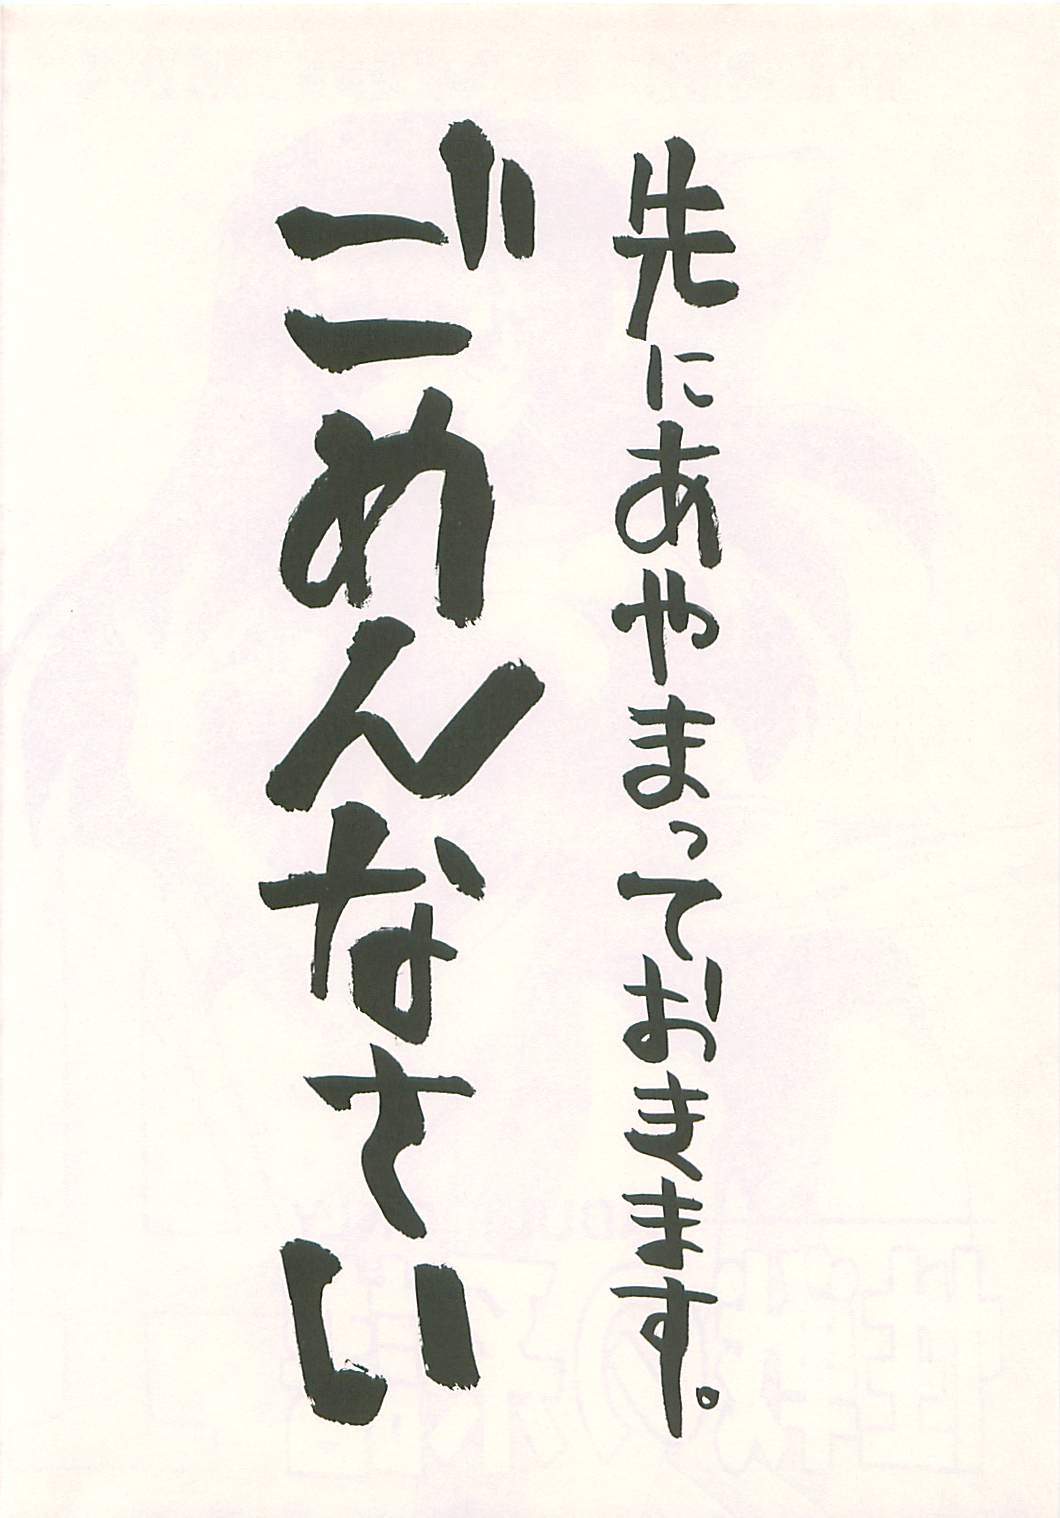 先にあやまっておきます。
ごめんなさい